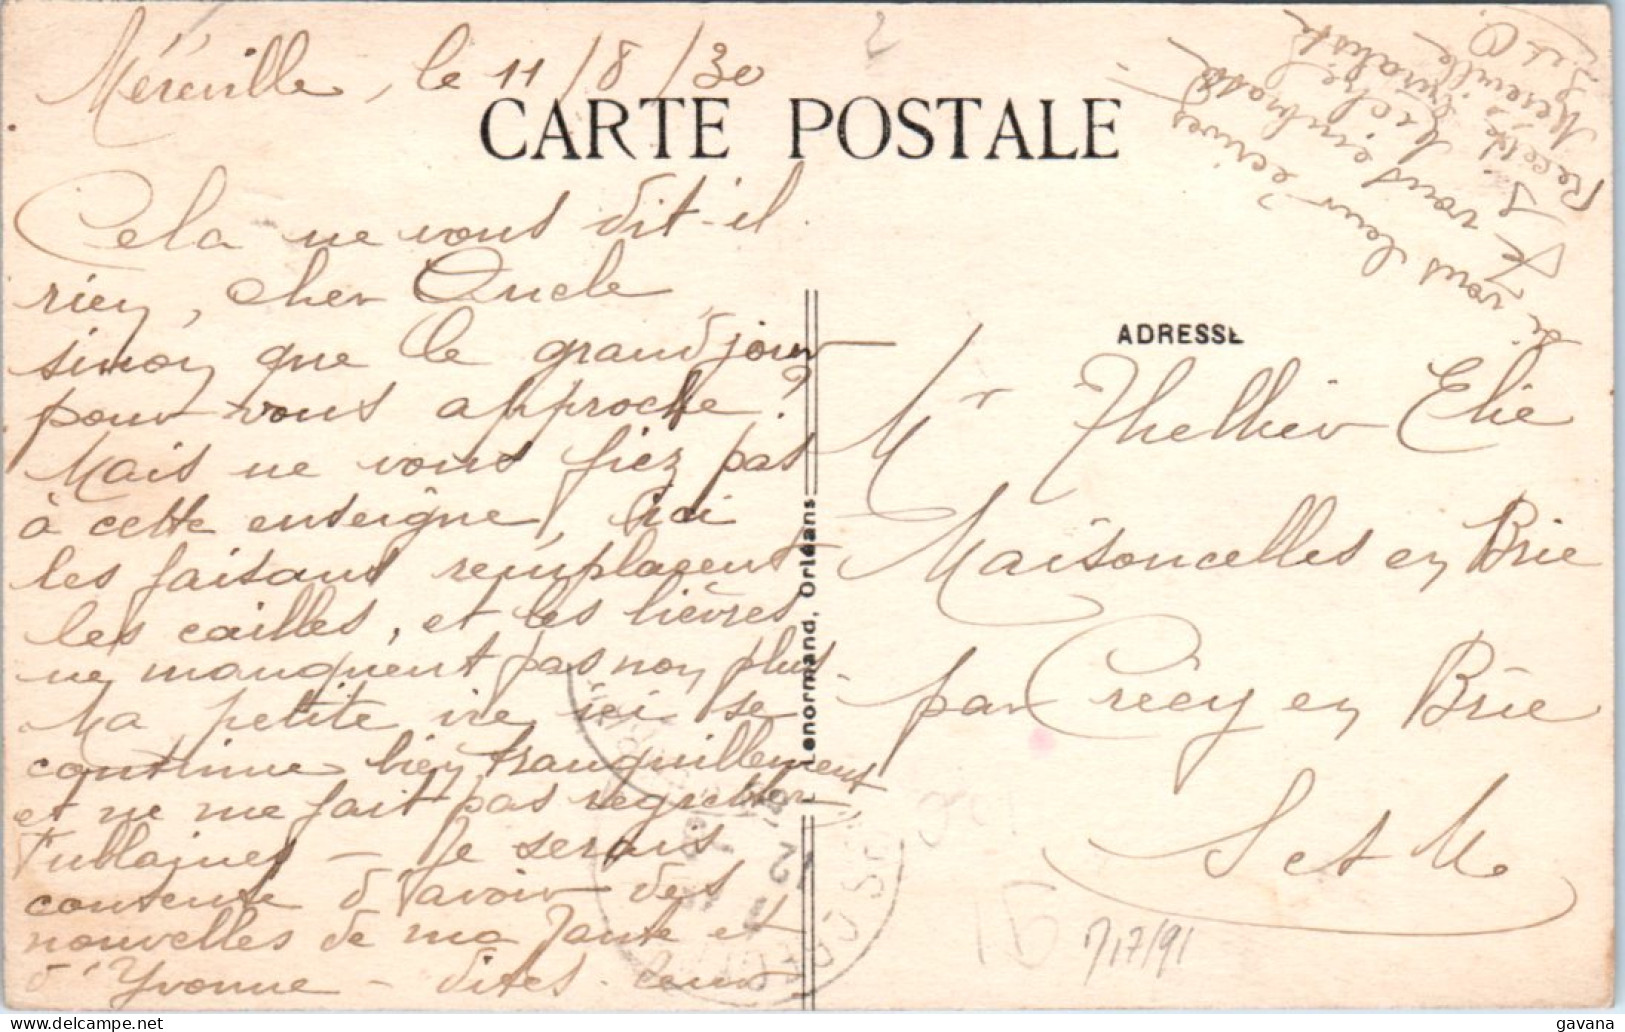 Méréville, le 11/8/30
CARTE POSTALE
Cela ne vous dit-il
rien, cher Oncle
sinon que le grand jour
pour vous approche?
Mais ne vous fiez pas
à cette enseigne, ici
les faisans remplacent
les cailles, et les lièvres
ne manquent pas non plus.
Ma petite vie ici se
continue bien tranquillement
et ne me fait pas regretter
Je serais
contente d'avoir des
nouvelles de ma Tante et
d'Yvonne - dites leur
de vous leur écrives
Je vous embrasse
Receveuse
Méréville
S et O
ADRESSE
Mr Thellier Elie
Maisoncelles en Brie
par Crécy en Brie
S et M
Lenormand, Orléans
7/7/91
gavana